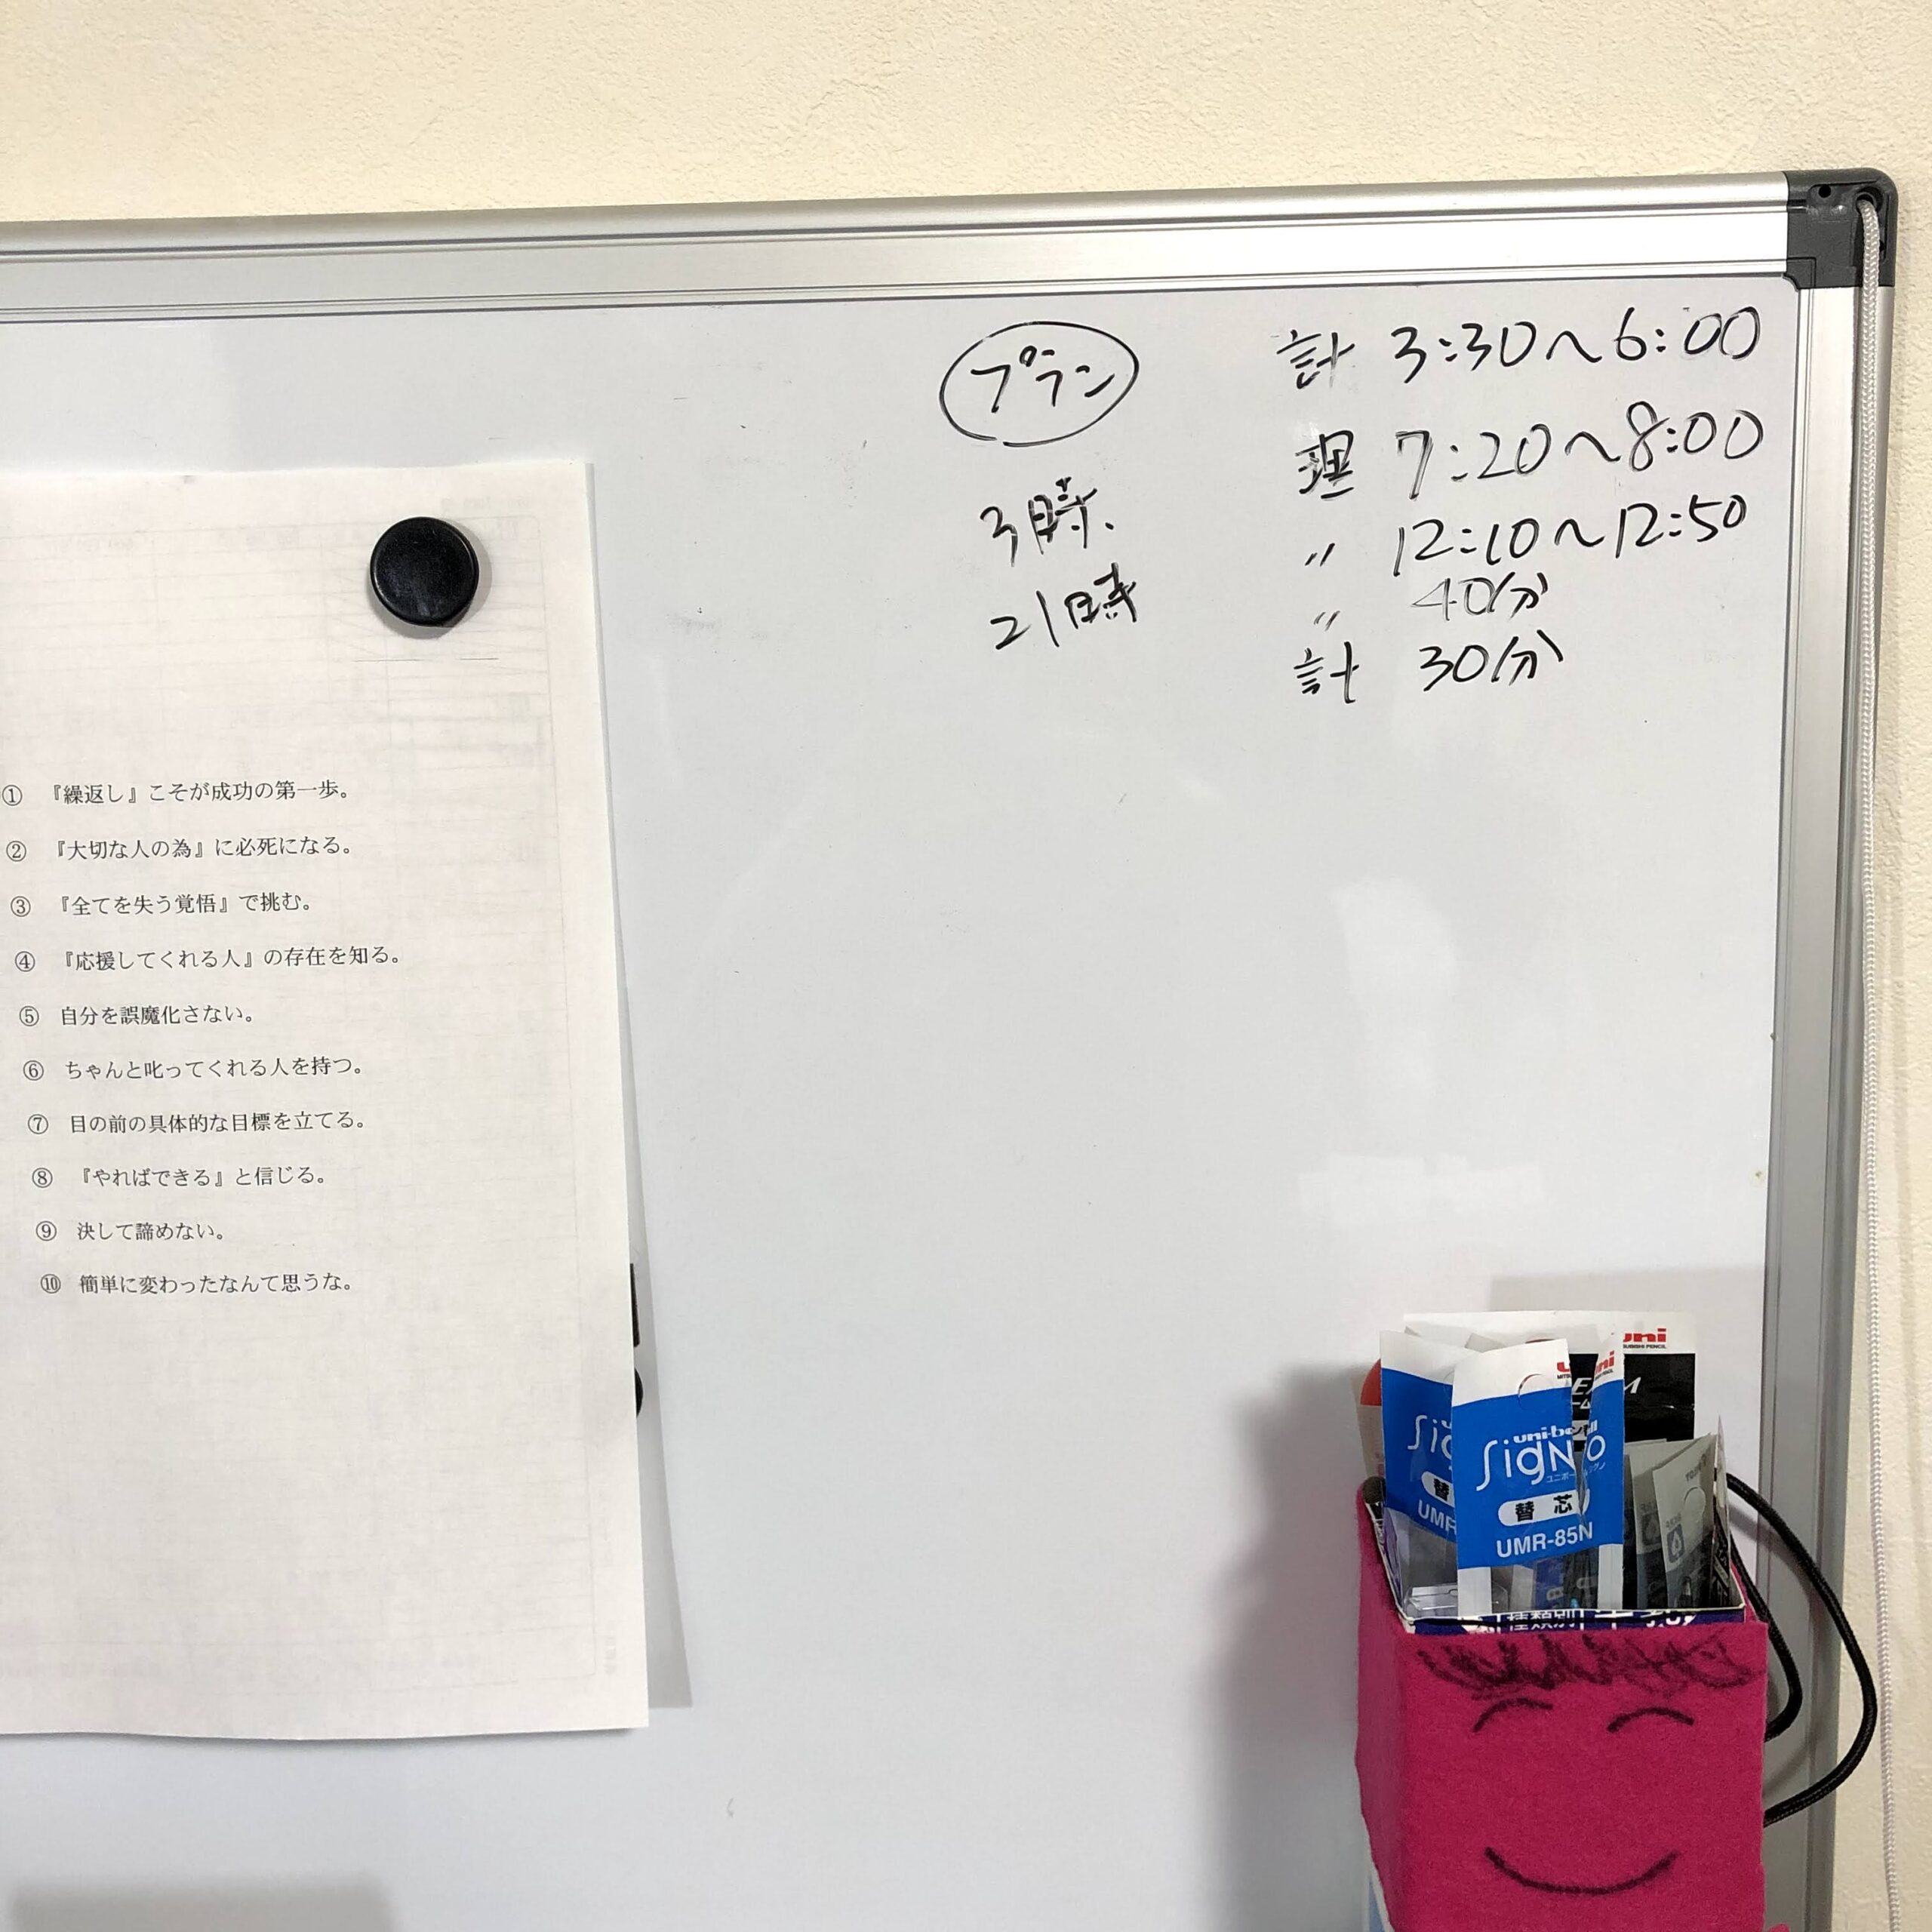 プラン
3時、
21時
計 3:30～6:00
理 7:20～8:00
〃 12:10～12:50
〃 40分
計 30分
① 『繰返し』こそが成功の第一歩。
② 『大切な人の為』に必死になる。
③ 『全てを失う覚悟』で挑む。
④ 『応援してくれる人』の存在を知る。
⑤ 自分を誤魔化さない。
⑥ ちゃんと叱ってくれる人を持つ。
⑦ 目の前の具体的な目標を立てる。
⑧ 『やればできる』と信じる。
⑨ 決して諦めない。
⑩ 簡単に変わったなんて思うな。
uni
MITSUBISHI PENCIL
uni-ball
Signo
替芯
UMR-85N
Sig
替
UMR
種類別